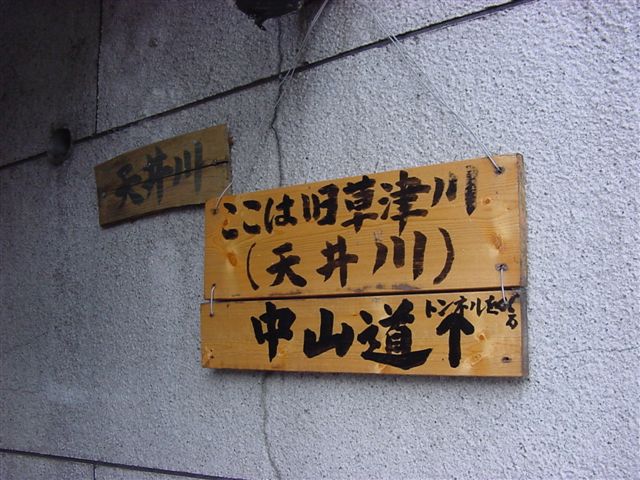 天井川
ここは旧草津川
(天井川)
トンネルを
中山道↑